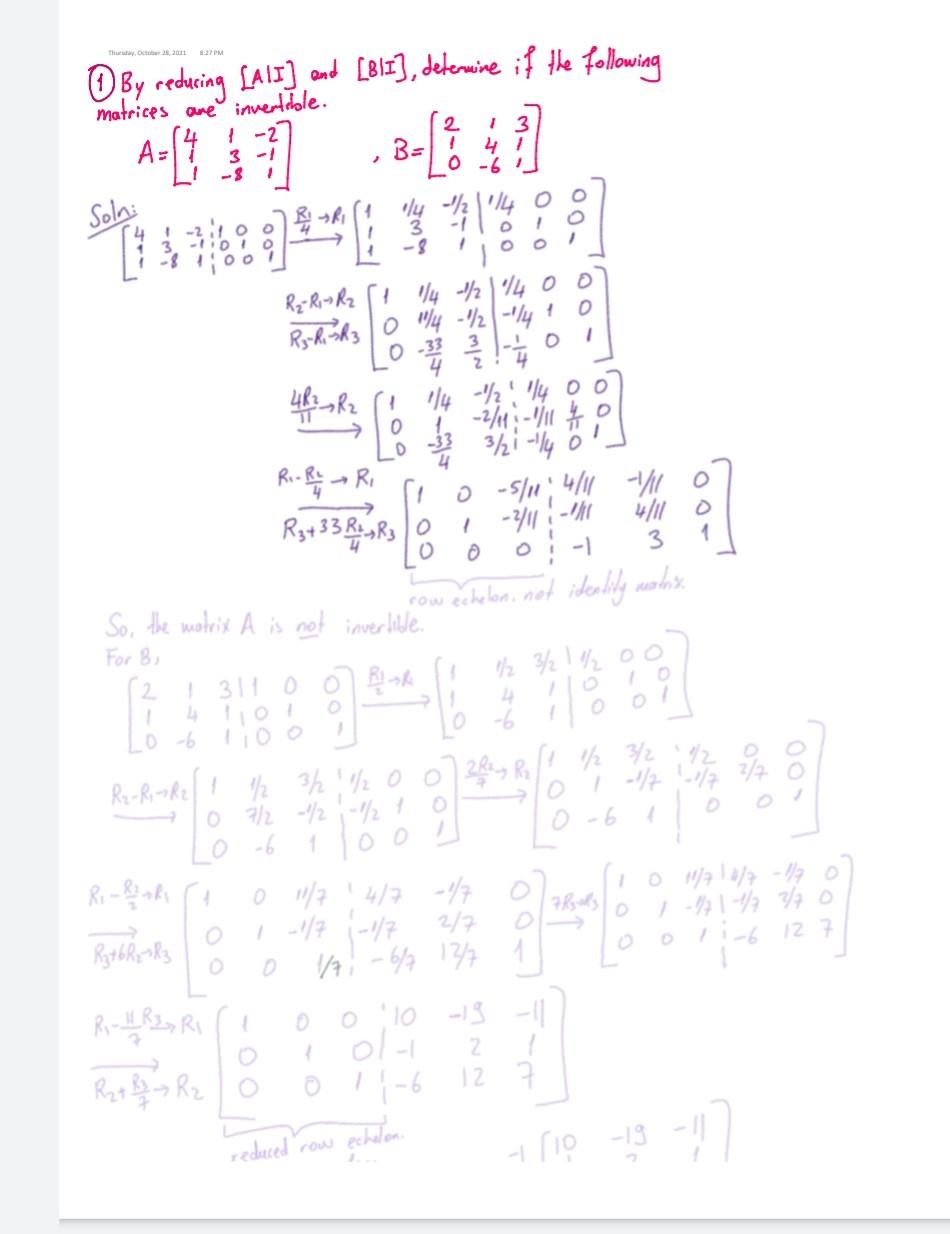 Thursday, October 28, 2021 8:27 PM
① By reducing [A|I] and [B|I], determine if the following
matrices are invertible.
A = [4 1 -2; 1 3 -1; 1 -8 1] , B = [2 1 3; 1 4 1; 0 -6 1]
Soln:
[4 1 -2 | 1 0 0; 1 3 -1 | 0 1 0; 1 -8 1 | 0 0 1] R1/4 → R1 [1 1/4 -1/2 | 1/4 0 0; 1 3 -1 | 0 1 0; 1 -8 1 | 0 0 1]
R2-R1→R2 R3-R1→R3 [1 1/4 -1/2 | 1/4 0 0; 0 11/4 -1/2 | -1/4 1 0; 0 -33/4 3/2 | -1/4 0 1]
4R2/11→R2 [1 1/4 -1/2 | 1/4 0 0; 0 1 -2/11 | -1/11 4/11 0; 0 -33/4 3/2 | -1/4 0 1]
R1-R2/4 → R1 R3+33R2/4→R3 [1 0 -5/11 | 4/11 -1/11 0; 0 1 -2/11 | -1/11 4/11 0; 0 0 0 | -1 3 1]
row echelon, not identity matrix.
So, the matrix A is not invertible.
For B,
[2 1 3 | 1 0 0; 1 4 1 | 0 1 0; 0 -6 1 | 0 0 1] R1/2 → R1 [1 1/2 3/2 | 1/2 0 0; 1 4 1 | 0 1 0; 0 -6 1 | 0 0 1]
R2-R1→R2 [1 1/2 3/2 | 1/2 0 0; 0 7/2 -1/2 | -1/2 1 0; 0 -6 1 | 0 0 1] 2R2/7 → R2 [1 1/2 3/2 | 1/2 0 0; 0 1 -1/7 | -1/7 2/7 0; 0 -6 1 | 0 0 1]
R1-R2/2→R1 R3+6R2→R3 [1 0 11/7 | 4/7 -1/7 0; 0 1 -1/7 | -1/7 2/7 0; 0 0 1/7 | -6/7 12/7 1] 7R3→R3 [1 0 11/7 | 4/7 -1/7 0; 0 1 -1/7 | -1/7 2/7 0; 0 0 1 | -6 12 7]
R1-11/7 R3→R1 R2+R3/7→R2 [1 0 0 | 10 -19 -11; 0 1 0 | -1 2 1; 0 0 1 | -6 12 7]
reduced row echelon.
-1 [10 -19 -11]